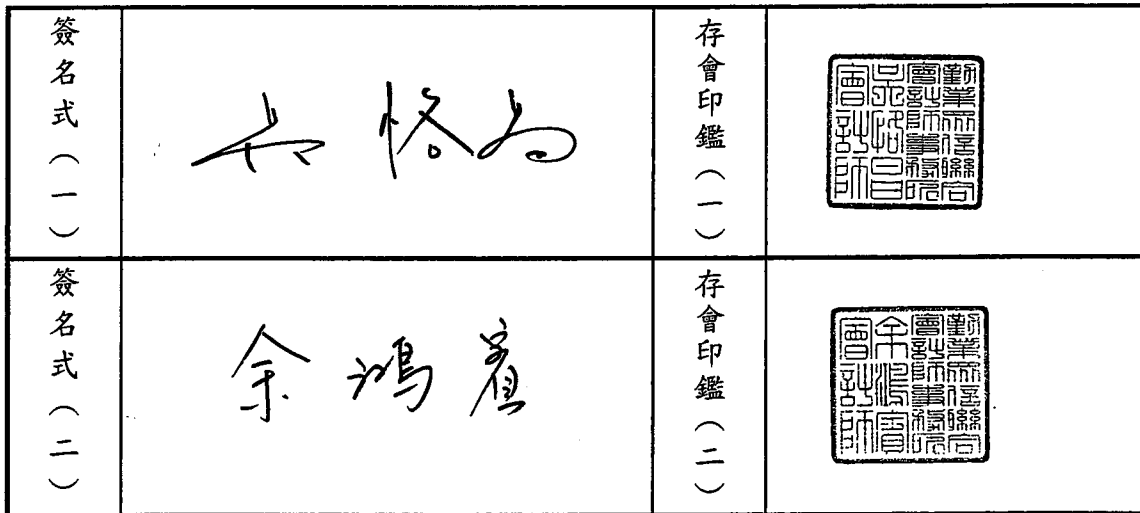 簽名式（一）
吳恪昌
存會印鑑（一）
勤業眾信聯合
會計師事務所
吳恪昌
會計師
簽名式（二）
余鴻賓
存會印鑑（二）
勤業眾信聯合
會計師事務所
余鴻賓
會計師